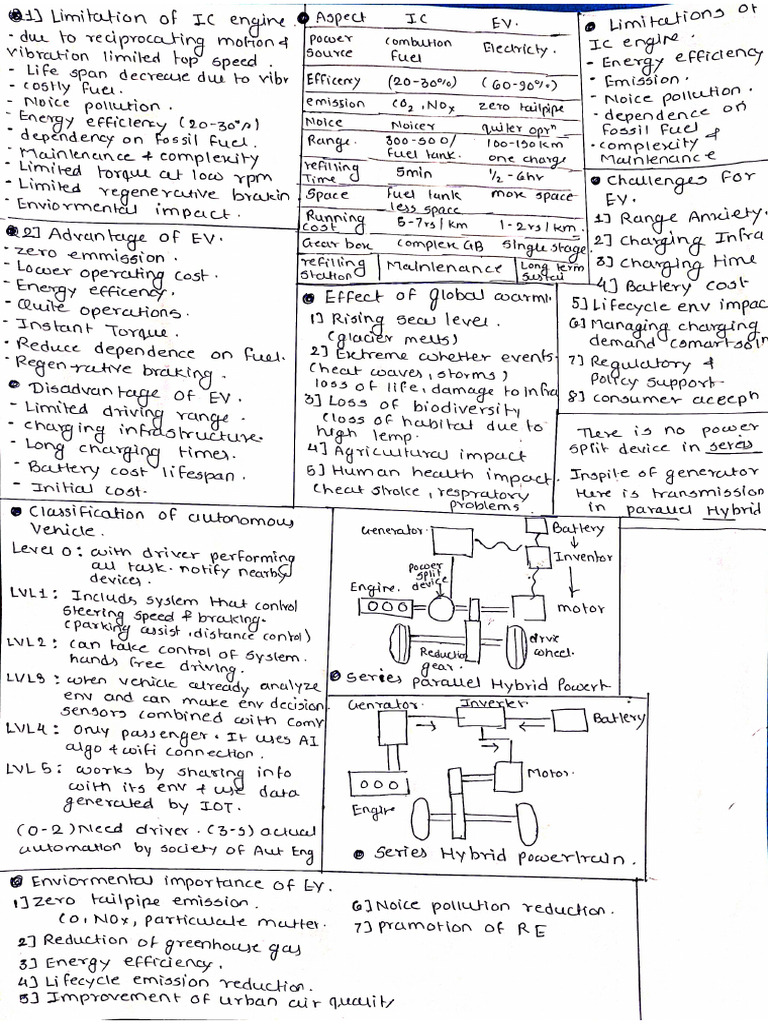 1) Limitation of IC engine.
- due to reciprocating motion &
vibration limited top speed.
- Life span decrease due to vibr
- costly fuel.
- Noice pollution.
- Energy efficiency (20-30%)
- dependency on Fossil Fuel.
- Maintenance & complexity
- Limited torque at low rpm
- Limited regenerative brakin
- Enviormental impact.
2] Advantage of EV.
- zero emmission.
- Lower operating cost.
- Energy efficency.
- Quite operations.
- Instant Torque.
- Reduce dependence on fuel.
- Regenrative braking.
Disadvantage of EV.
- Limited driving range.
- charging infrastructure.
- Long charging times.
- Battery cost lifespan.
- Initial cost.
Aspect IC EV.
Power Source Combution Fuel Electricty.
Efficeny (20-30%) (60-90%)
emission CO2, NOx zero tailpipe
Noice Noicer quiter oprn
Range. 300-500/ Fuel tank. 100-150km one charge
refilling Time 5min 1/2-6hr
Space Fuel tank less space more space
Running cost 5-7rs/km 1-2rs/km.
Gear box complex GB Single stage
refilling station Maintenance Long term
Effect of global warmi.
1] Rising sea level.
(glacier melts)
2] Extreme whether events.
(heat waves, storms)
loss of life, damage to Infra
3] Loss of biodiversity
(loss of habitat due to
high temp.
4] Agricultural impact
5] Human health impact.
(heat stroke, respratory
problems.
Limitations of
IC engine.
- Energy efficiency
- Emission.
- Noice pollution.
- dependence on
Fossil Fuel
- complexity &
Maintenance
Challenges For
EV.
1] Range Anxiety.
2] Charging Infra
3] Charging time
4] Battery cost
5] Lifecycle env impac
6] Managing charging
demand
7] Regulatory &
Policy support
8] consumer
There is no power
split device in series
Inspite of generator
there is transmission
in parallel Hybrid
Classification of autonomous
Vehicle.
Level 0: with driver performing
all task. notify nearby
devices.
LVL1: Includs system that control
steering speed & braking.
(parking assist, distance contol)
LVL2: can take control of system.
hands free driving.
LVL3: when vehicle already analyze
env and can make env decision
sensors combined with
LVL4: only passenger. It uses AI
algo + wifi connection.
LVL5: works by sharing info
with its env + use data
generated by IOT.
(0-2) Need driver. (3-5) actual
automation by society of Aut Eng
Generator.
Battery
Inventor
Power
split
device
Engine.
motor
Reduction
gear.
drive
wheel.
Series parallel Hybrid Powert
Genrator
Inverter
Battery
Motor.
Engine
Series Hybrid powertrain.
Enviormental importance of EV.
1] Zero tailpipe emission.
CO, NOx, particulate matter.
2] Reduction of greenhouse gas
3] Energy efficiency.
4] Lifecycle emission reduction.
5] Improvement of urban air quality
6] Noice pollution reduction.
7] pramotion of RE